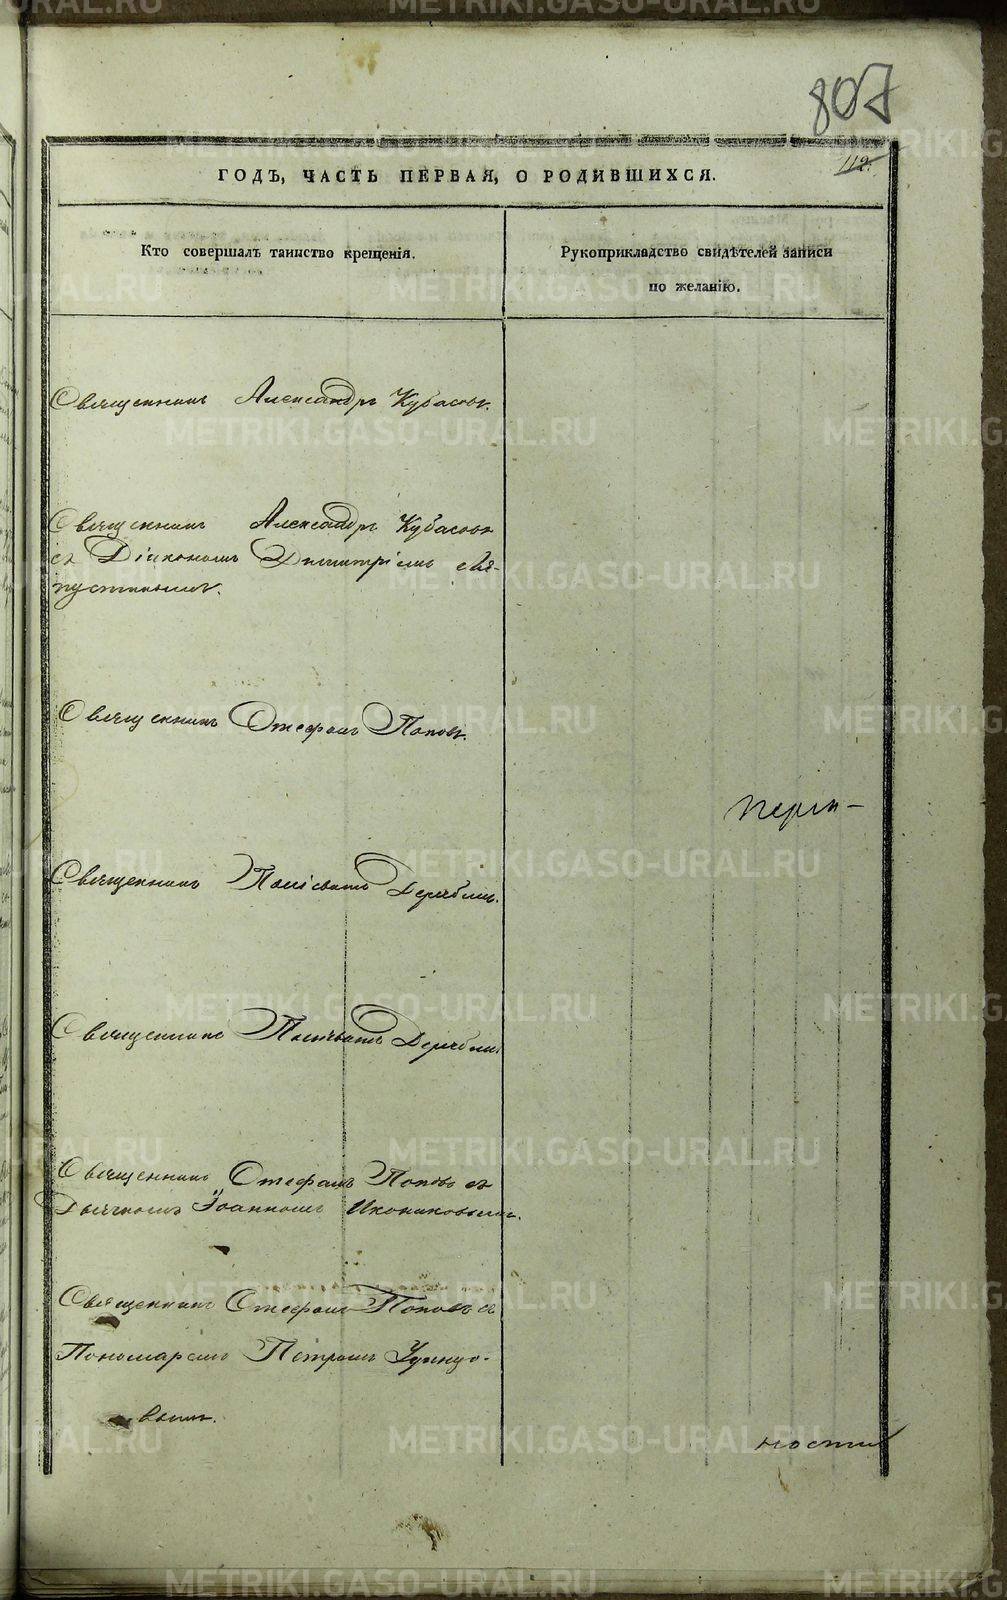 807
112.
ГОДЪ, ЧАСТЬ ПЕРВАЯ, О РОДИВШИХСЯ.
Кто совершалъ таинство крещенія.
Рукоприкладство свидѣтелей записи
по желанію.
Священникъ Александръ Кубасовъ.
Священникъ Александръ Кубасовъ
съ Діакономъ Димитріемъ
Священникъ Стефанъ Поповъ.
Священникъ
Священникъ
Священникъ Стефанъ Поповъ съ
Дьячкомъ Іоанномъ Икониковымъ.
Священникъ Стефанъ Поповъ съ
Пономаремъ Петромъ
вымъ.
ности
METRIKI.GASO-URAL.RU